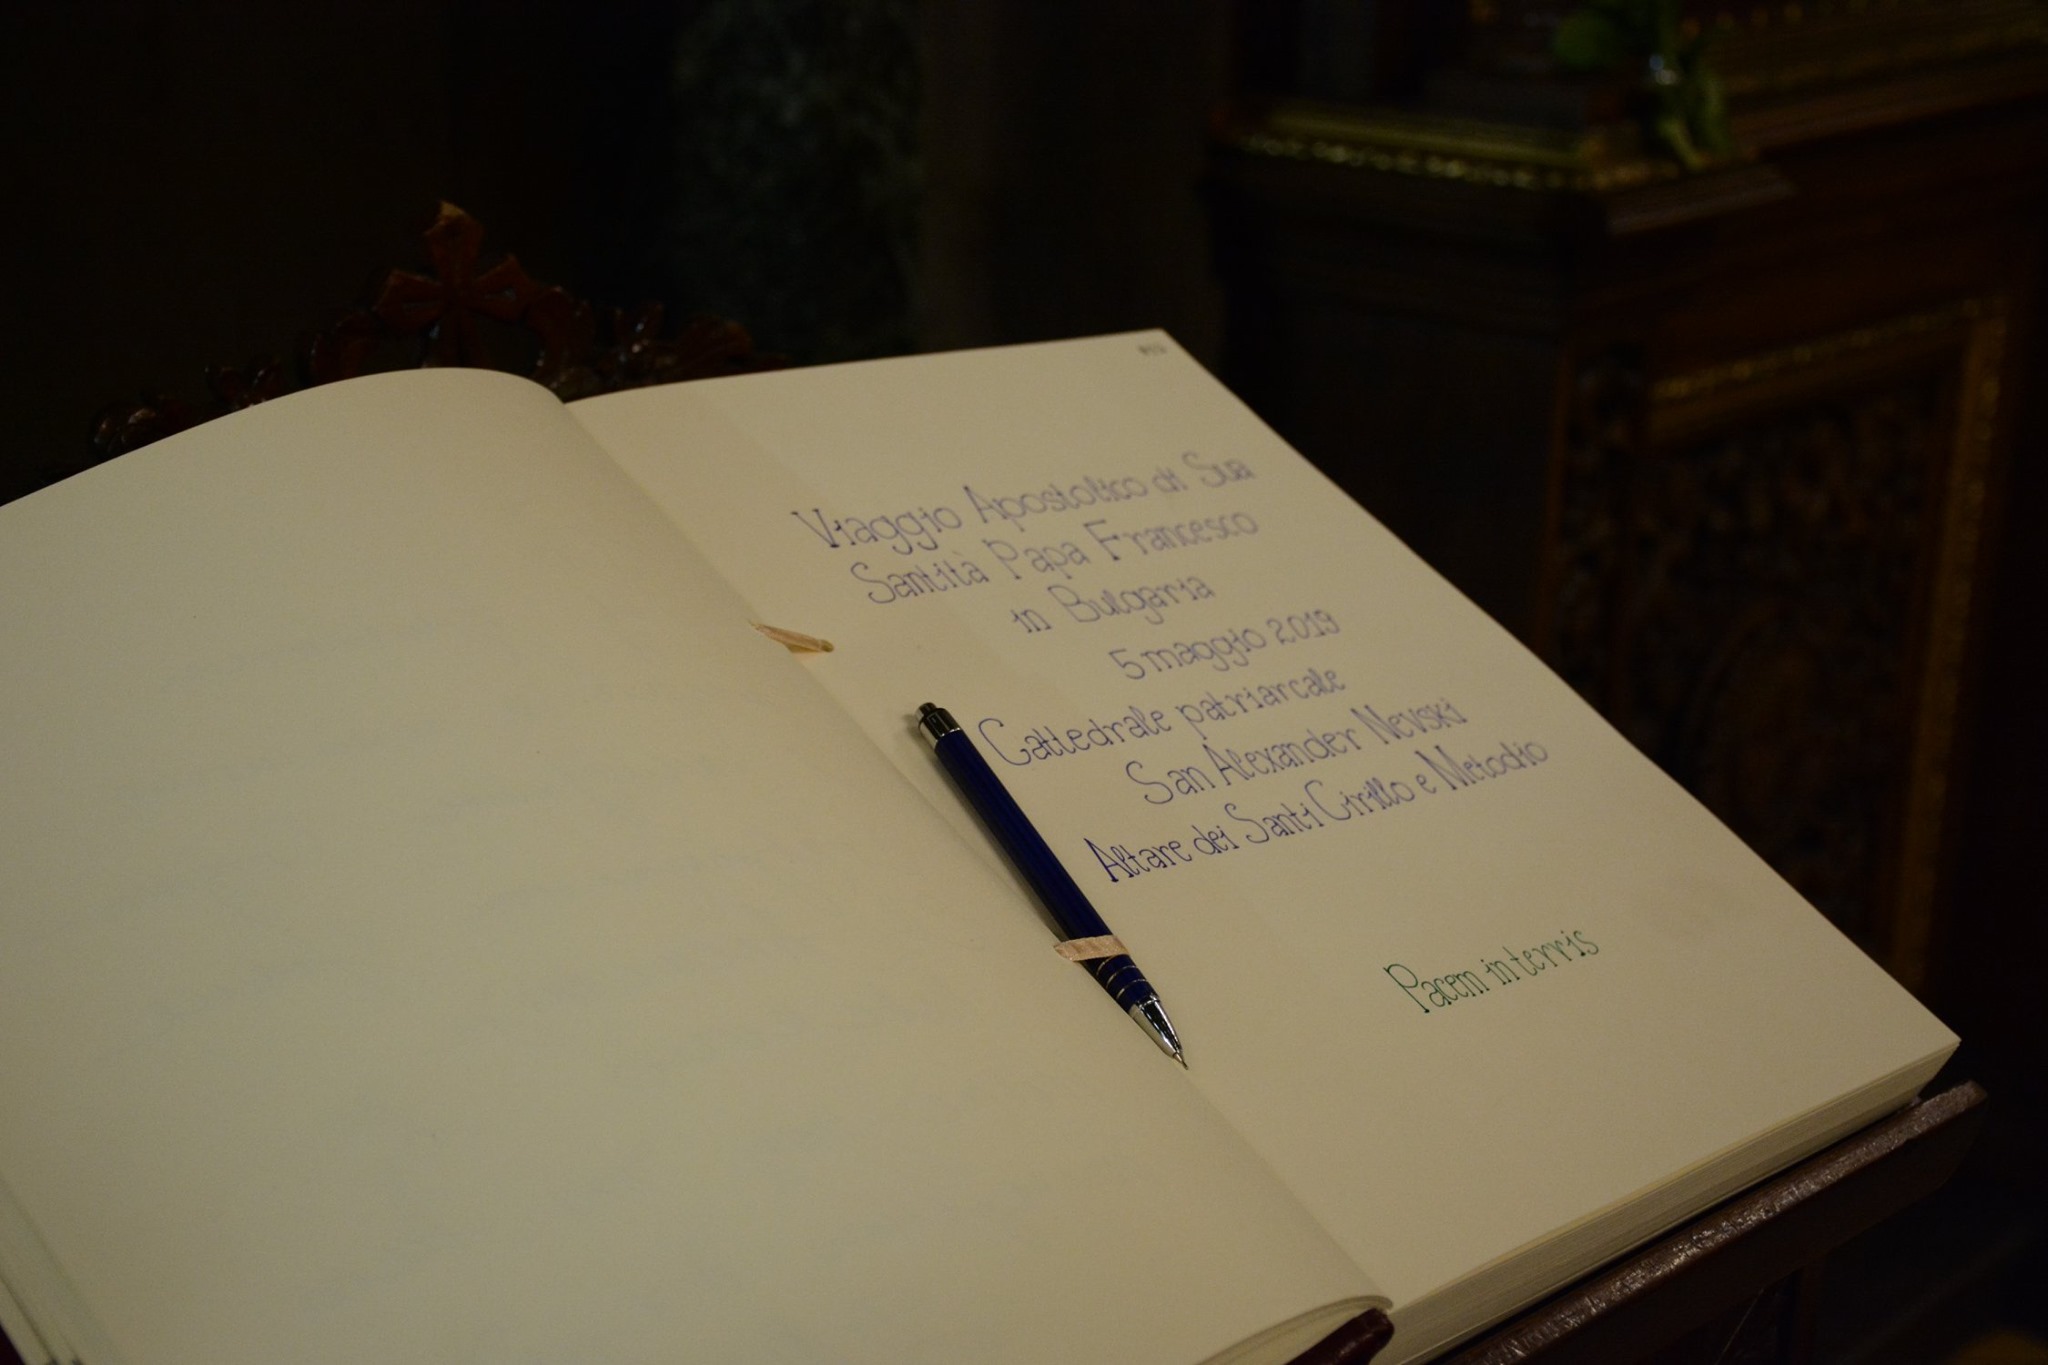 Viaggio Apostolico di Sua
Santità Papa Francesco
in Bulgaria
5 maggio 2019
Cattedrale patriarcale
San Alexander Nevski
Altare dei Santi Cirillo e Metodio
Pacem in terris